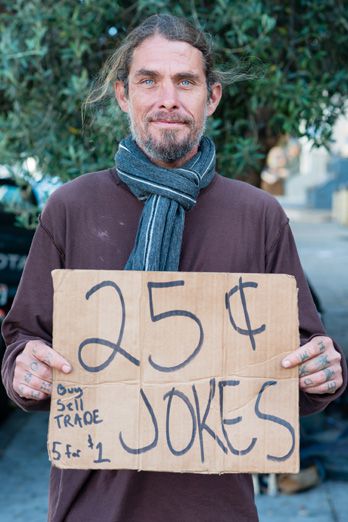 25¢
JOKES
Buy
Sell
TRADE
5 for $1